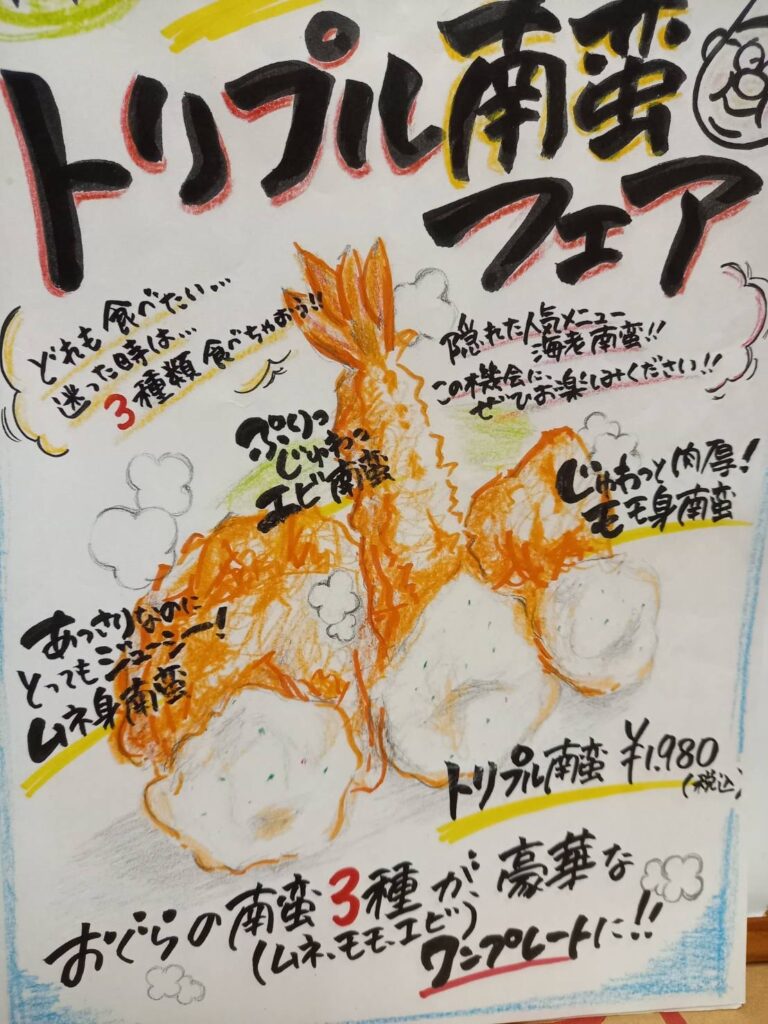 トリプル南蛮
フェア
どれも食べたい…
迷った時は…
3種類食べちゃおう!!
隠れた人気メニュー
海老南蛮!!
この機会に、
ぜひお楽しみください!!
ぷりっ
じゅわっ
エビ南蛮
じゅわっと肉厚!
モモ身南蛮
あっさりなのに
とってもジューシー!
ムネ身南蛮
トリプル南蛮 ¥1,980
(税込)
おぐらの南蛮3種が、豪華な
(ムネ、モモ、エビ)
ワンプレートに!!